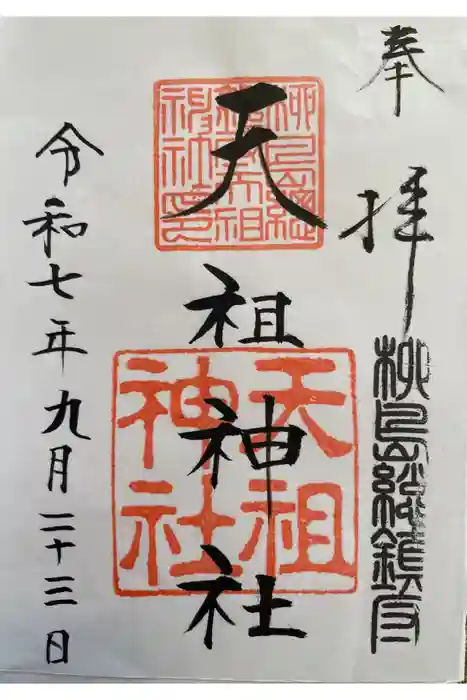 奉拝
柳島総鎮守
柳島總
鎮守天祖
神社印
天祖神社
天祖
神社
令和七年九月二十三日